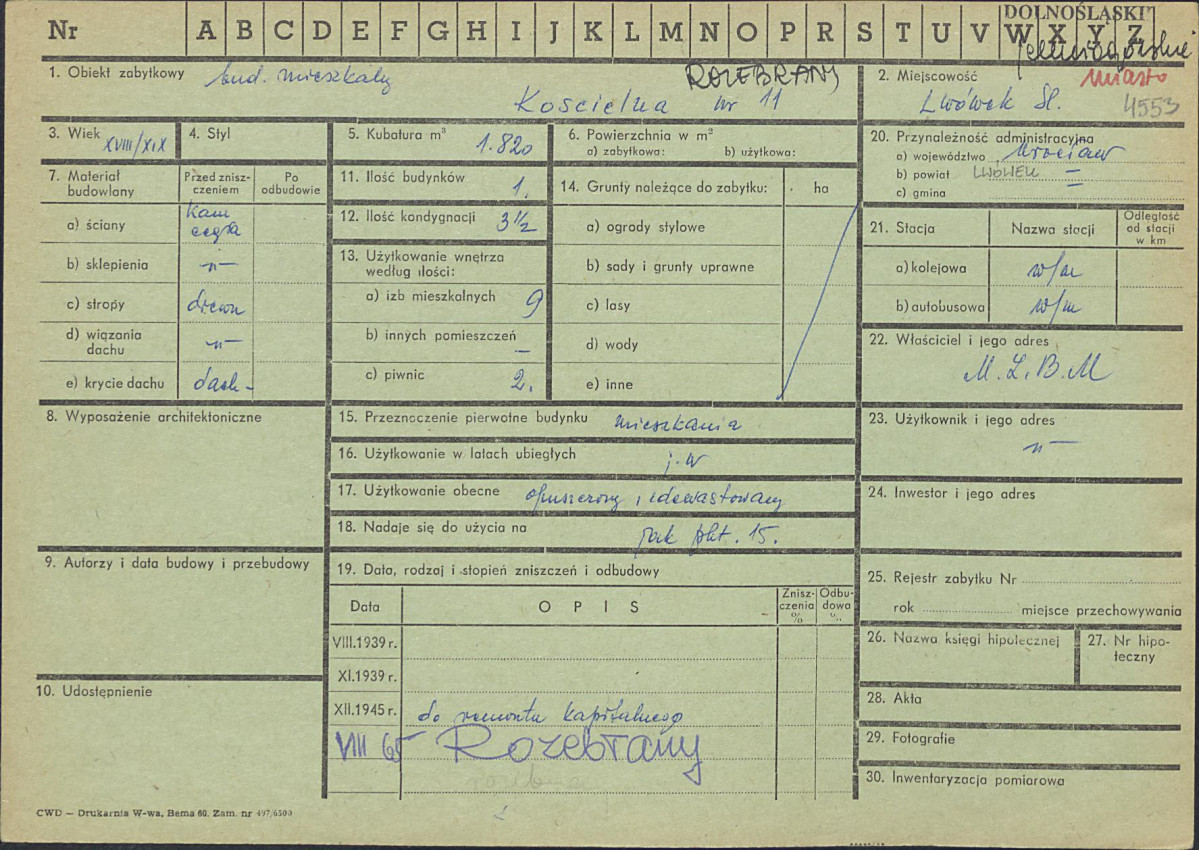 Nr A B C D E F G H I J K L M N O P R S T U V W X Y Z
DOLNOŚLĄSKIE
jeleniogórskie
1. Obiekt zabytkowy bud. mieszkalny ROZEBRANY
Kościelna nr 11
2. Miejscowość miasto
Lwówek Śl. 4553
3. Wiek XVIII/XIX
4. Styl
5. Kubatura m³ 1.820
6. Powierzchnia w m²
a) zabytkowa: b) użytkowa:
20. Przynależność administracyjna
a) województwo Wrocław
b) powiat LWÓWEK
c) gmina
7. Materiał budowlany
Przed zniszczeniem
Po odbudowie
a) ściany kam cegła
b) sklepienia -"-
c) stropy drewn
d) wiązania dachu -"-
e) krycie dachu dach-
11. Ilość budynków 1.
12. Ilość kondygnacji 3½
13. Użytkowanie wnętrza
według ilości:
a) izb mieszkalnych 9
b) innych pomieszczeń –
c) piwnic 2.
14. Grunty należące do zabytku: ha
a) ogrody stylowe
b) sady i grunty uprawne
c) lasy
d) wody
e) inne
21. Stacja
Nazwa stacji
Odległość od stacji w km
a) kolejowa w/m
b) autobusowa w/m
22. Właściciel i jego adres
M.Z.B.M
8. Wyposażenie architektoniczne
15. Przeznoczenie pierwotne budynku mieszkania
16. Użytkowanie w latach ubiegłych j.w
17. Użytkowanie obecne opuszczony i zdewastowany
18. Nadaje się do użycia na jak pkt. 15.
23. Użytkownik i jego adres
-"-
24. Inwestor i jego adres
9. Autorzy i data budowy i przebudowy
19. Data, rodzaj i stopień zniszczeń i odbudowy
Data
OPIS
Zniszczenia %
Odbudowa %
VIII.1939 r.
XI.1939 r.
XII.1945 r. do remontu kapitalnego
VIII 65 Rozebrany
25. Rejestr zabytku Nr
rok miejsce przechowywania
26. Nazwa księgi hipotecznej
27. Nr hipoteczny
10. Udostępnienie
28. Akta
29. Fotografie
30. Inwentaryzacja pomiarowa
CWD — Drukarnia W-wa, Bema 60. Zam. nr 497/6500